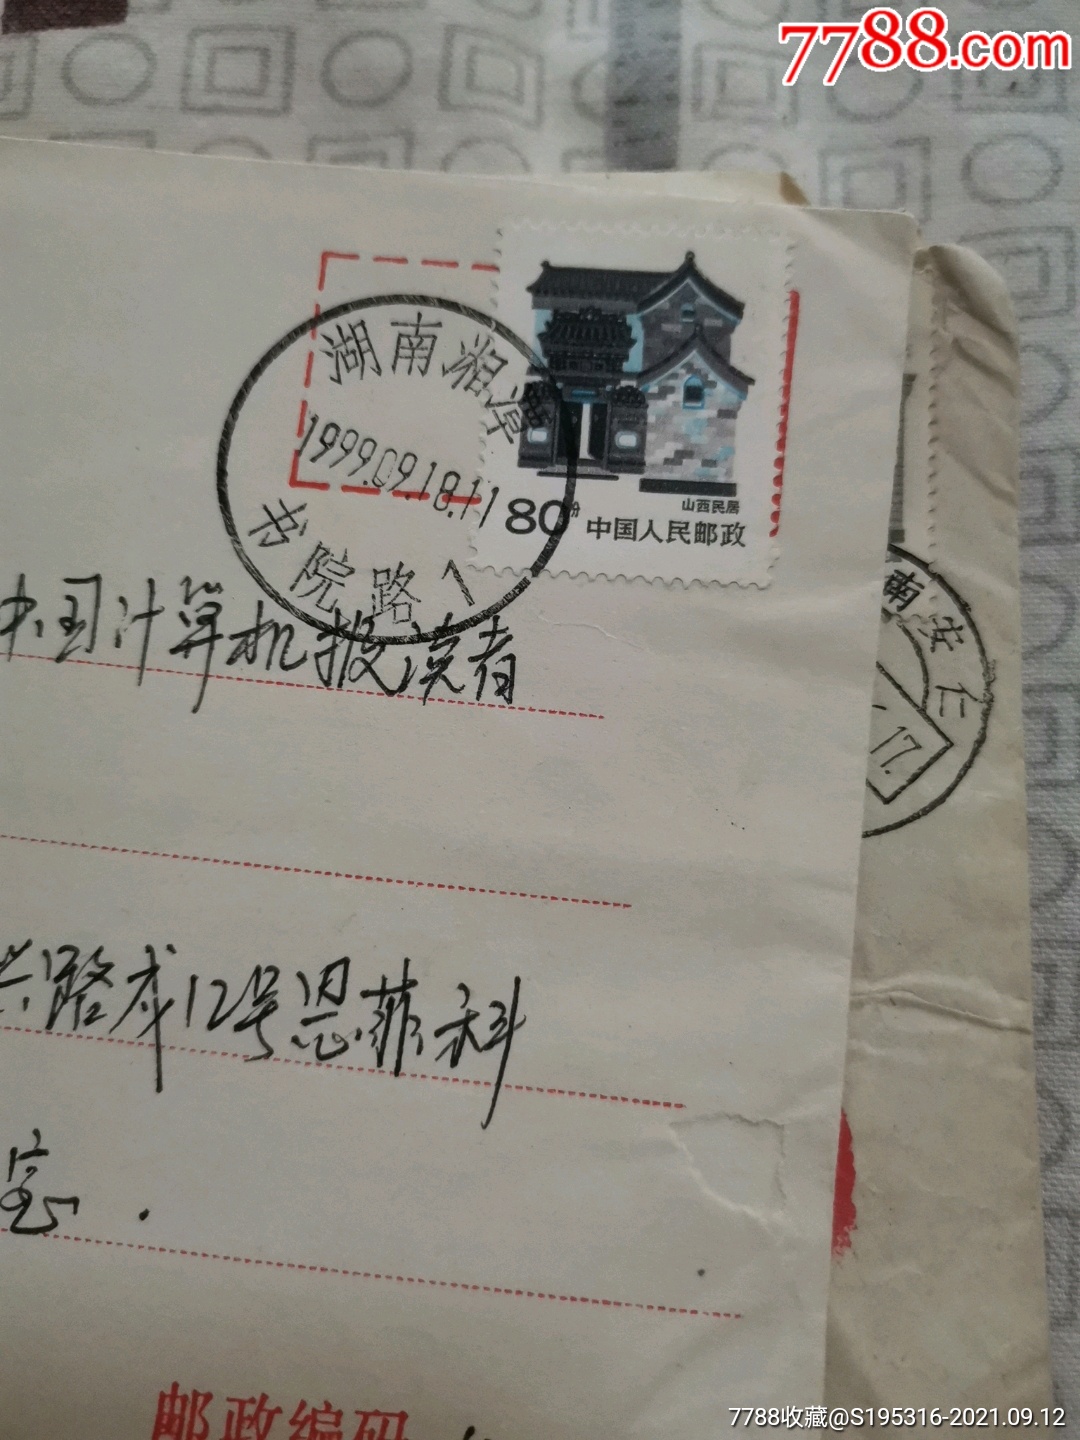 7788.com
湖南湘潭
1999.09.18.11
书院路 1
山西民居
80分 中国人民邮政
南安仁
17.
中国计算机报读者
路戍12号恩菲科
室.
邮政编码
7788收藏@S195316-2021.09.12